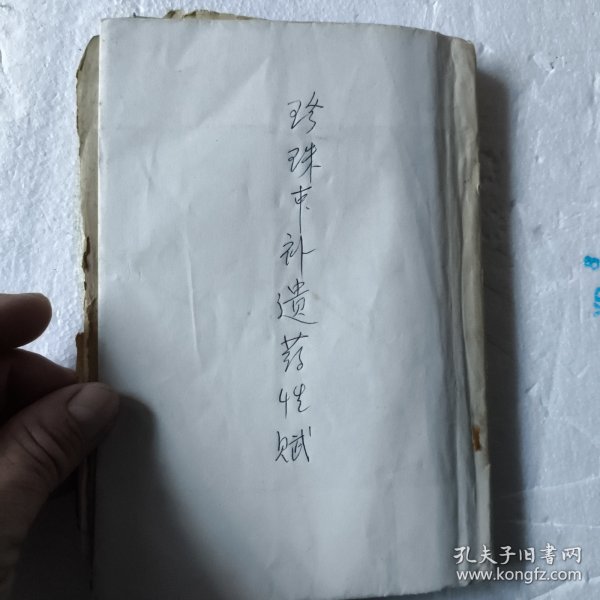 珍珠市补遗药性赋
孔夫子旧书网
www.kongfz.com